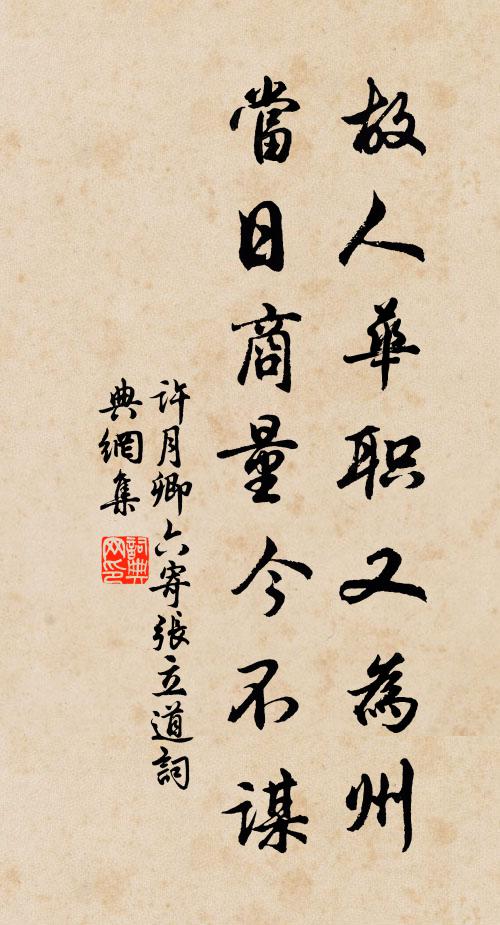 故人華职又為州
當日商量今不謀
許月卿六寄張立道詞
典網集
詞典網印